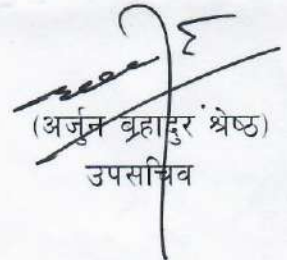 (अर्जुन बहादुर श्रेष्ठ)
उपसचिव